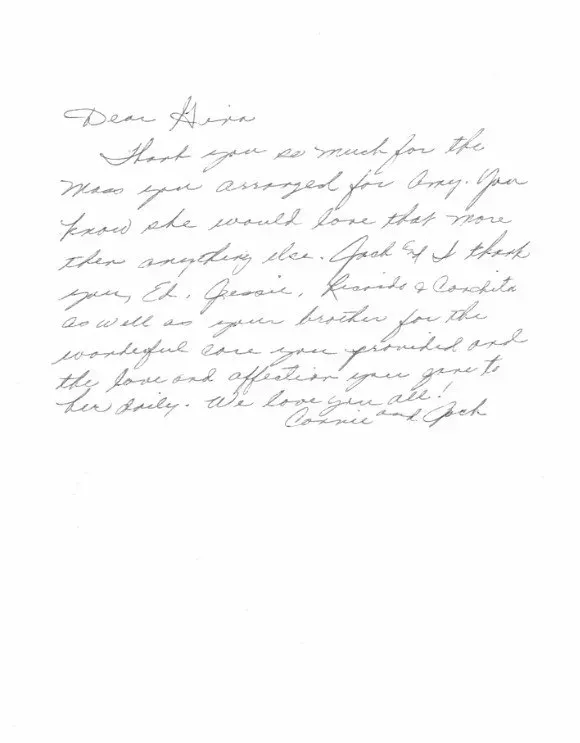 Dear Gina
Thank you so much for the
Mass you arranged for Amy. You
know she would love that more
then anything else. Jack and I thank
you, Ed, Jessie, Ricardo & Conchita
as well as your brother for the
wonderful care you provided and
the love and affection you gave to
her daily. We love you all!
Connie and Jack